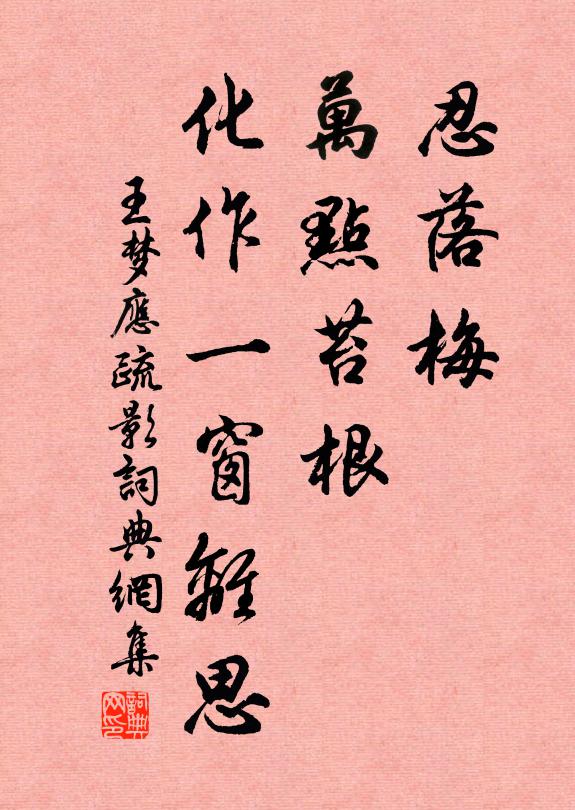 忍落梅
萬點苔根
化作一窗離思
王梦應疏影詞典網集
詞典网印